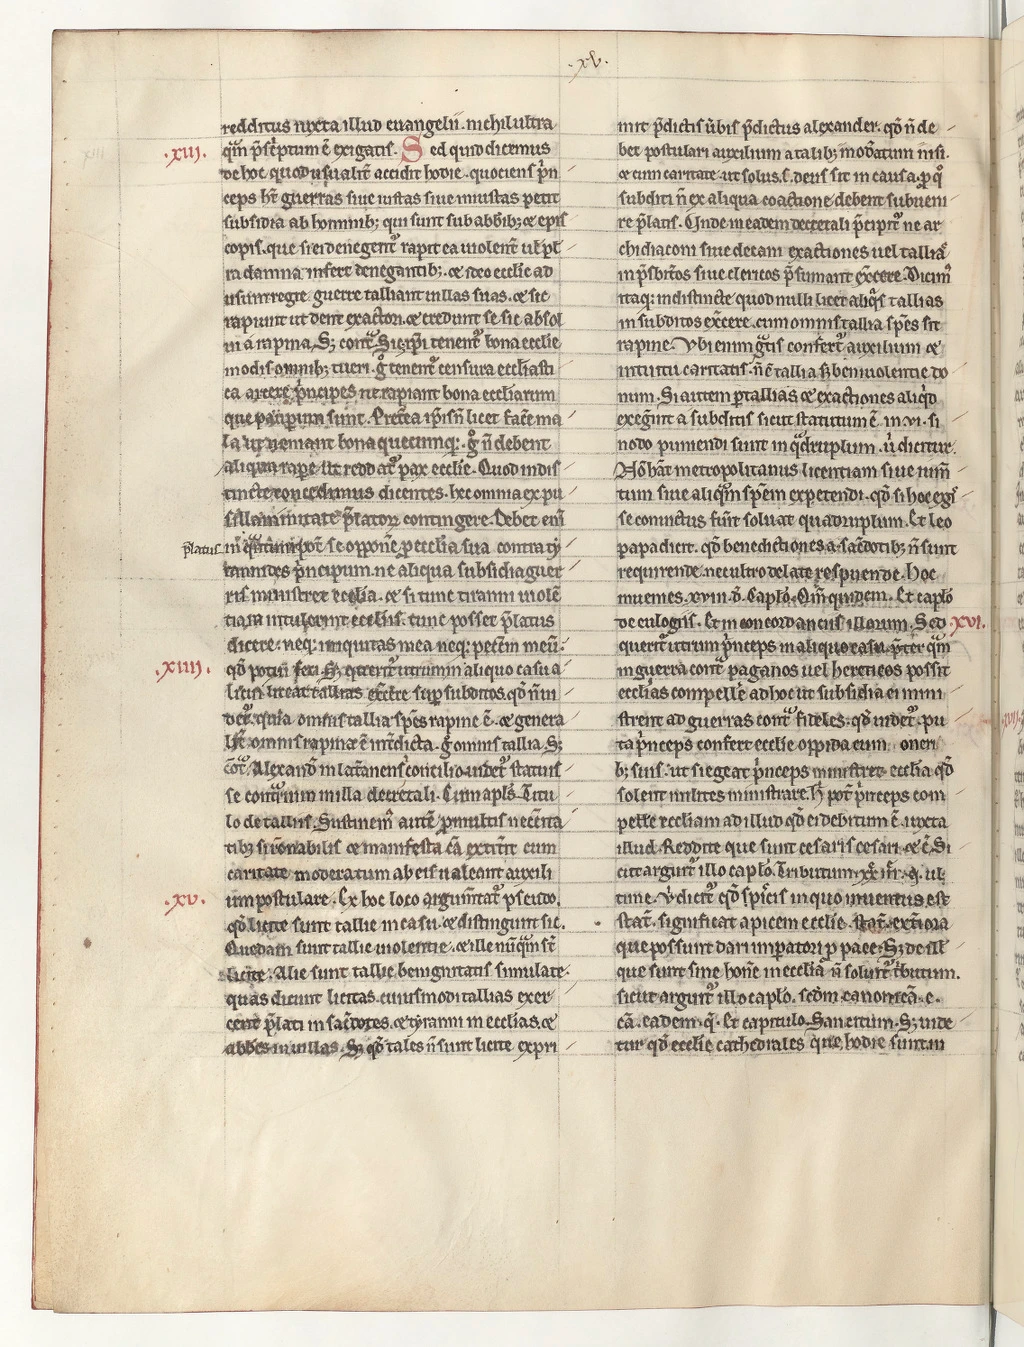 .xv.
redditus iuxta illud euangelii. nichil ultra
.xiii.
qm̄ p̄sc̄ptum ē exigatis. Sed quid dicemus
de hoc quod usualit̄ accidit hodie. quociens p̄n
ceps ht̄ guerras siue iustas siue iniustas petit
subsidia ab hominib; qui sunt sub abbīb; & epis
copis. que si ei denegent᷑ rapit ea uiolent̄ ul̄ pl̄
ra damna infert denegantib;. & ideo ecclīe ad
usum regie guerre talliant uillas suas. & sic
rapiunt ut dent exactori. & credunt se sic absol
ui a rapina. S; cont̄ᵃ. Si ep̄i tenent᷑ bona ecclīe
modis omnib; tueri. g̊ tenent᷑ censura ecclīasti
ca arcere p̄ncipes ne rapiant bona eccliarum
que paup̱um sunt. Pret̄ea ip̄is n̄ licet fac̄e ma
la ut ueniant bona quecumq;. g̊ n̄ debent
aliqua rap̄e ut reddat᷑ pax ecclīe. Quod indis
tincte concedimus dicentes. hec omnia ex pu
sillanimitate p̄latoꝝ contingere. Debet eni᷑
p̄latus
in q̄ntum pot̄ se oppon̄e ꝓ ecclīa sua contra ty
rannides p̄ncipum. ne aliqua subsidia guer
ris ministret ecclīa. & si tunc tiranni uiolē
tiam intulerint ecclīis. tunc posset p̄latus
dicere. neq; iniquitas mea neq; peccm̄ meū.
.xiiii.
qd̄ potui feci. S; querit᷑ utrum in aliquo casu a
licui liceat tallias exc̄ere sup̱ subditos. qd̄ n̄ ui
det᷑. quia omnis tallia sp̄es rapine ē. & genera
lit̄ omnis rapina ē int̄dicta. g̊ omnis tallia. S;
cont̄ᵃ. Alexand̄ in lat̄anensi concilio uidet᷑ statuis
se cont̄rium in illa decretali. Cum apl̄s. Titu
lo de talliis. Sustinem᷑ autē ꝓ multis necēita
tib; si rōnabilis & manifesta cā extit̄it cum
caritate moderatum ab eis ualeant auxili
.xv.
um postulare. Ex hoc loco argumtat᷑ pseudo.
qd̄ licite sunt tallie in casu. & distingunt sic.
Quedam sunt tallie uiolentie. & ille nūq̄m st̄
licite. Alie sunt tallie benignitatis simulate.
quas dicunt licitas. cuiusmodi tallias exer
cent p̄lati in sac̄dotes. & tyranni in ecclīas. &
abbēs in uillas. S; qd̄ tales n̄ sunt licite expri
mit p̄dictis ūbis p̄dictus alexander. qd̄ n̄ de
bet postulari auxilium a talib; mod̄atum nisi.
& cum caritate. ut solus. s. deus sit in causa. ꝑ q̊
subditi n̄ ex aliqua coactione debent subueni
re p̄latis. Unde in eadem decretali p̄cipit᷑ ne ar
chidiaconi siue decani exactiones uel tallias
in p̄sbit̄os siue clericos p̄sumant exc̄ere. Dicim᷑
itaq; indistincte quod nulli licet aliq̄s tallias
in subditos exc̄ere. cum omnis tallia sp̄es sit
rapine. Vbi enim g̃tis confert᷑ auxilium &
intuitu caritatis. n̄ ē tallia s; beniuolentie do
num. Si autem ꝑ tallias & exactiones aliq̇d
exeḡint a subditis sicut statutum ē in. vi. si
nodo puniendi sunt in q̄druplum. ū dicitur.
Nō hāt metropolitanus licentiam siue num̄
tum siue aliq̄m sp̄em expetendi. qd̄ si hoc exḡ
se conuictus fuīt soluat quadruplum. Et leo
papa dicit. qd̄ benedictiones a sac̄dotib; n̄ sunt
requirende. nec ultro delate respuende. Hoc
inuenies. xviii. d̄. Caplo᷑. Qm̄ quidem. Et caplo᷑
de eulogiis. Et in concordanciis illorum. Sed
.xvi.
querit᷑ utrum p̄nceps in aliquo casu. p̄ter q̄m
in guerra cont̄ᵃ paganos uel hereticos possit
ecclīas compell̄e ad hoc ut subsidia ei mini
strent ad guerras cont̄ᵃ fideles. qd̄ uidet᷑. pu
ta p̄nceps confert ecclīe oppida cum oneri
b; suis. ut si egeat p̄nceps ministret ecclīa qd̄
solent milites ministrare. H̄ pot̄ p̄nceps com
pell̄e eccliam ad illud qd̄ ei debitum ē. iuxta
illud. Reddite que sunt cesaris cesari. &c̄. Si
cut arguit᷑ illo caplo᷑. Tributum. xxiii. q. ul
time. Vb dicit᷑ qd̄ sp̄cis in quo inuentus est
stat᷑. significat apicem ecclīe. stat̄. ext̄iora
que possunt dari imp̱atori ꝓ pace. S; de ill
que sunt sine hon̄e in ecclīa n̄ soluit᷑ t̄butum.
sicut arguit᷑ illo caplo᷑. scd̄m canonicā. e.
cā. eadem. q̄. Et capitulo. Sancitum. S; uide
tur qd̄ ecclīe cathedrales que hodie sunt in